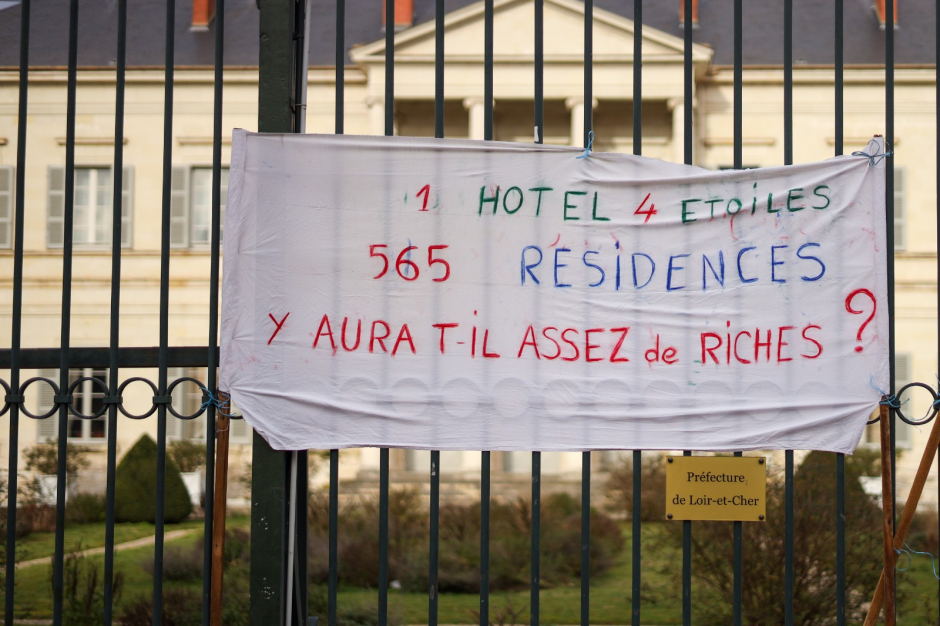 1 HOTEL 4 ETOiLES
565 RÉSiDENCES
Y AURA T-iL ASSEZ de RiCHES ?
Préfecture
de Loir-et-Cher